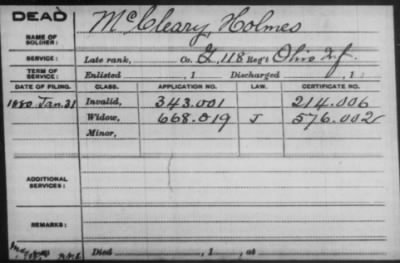 DEAD
NAME OF SOLDIER: McCleary, Holmes
SERVICE: Late rank, Co. G, 118 Reg't Ohio Inf.
TERM OF SERVICE: Enlisted , 1 Discharged , 1
DATE OF FILING. CLASS. APPLICATION NO. LAW. CERTIFICATE NO.
1880 Jan. 31 Invalid, 343.001 214.006
Widow, 668.019 J 576.002
Minor,
ADDITIONAL SERVICES:
REMARKS:
Died , 1 , at